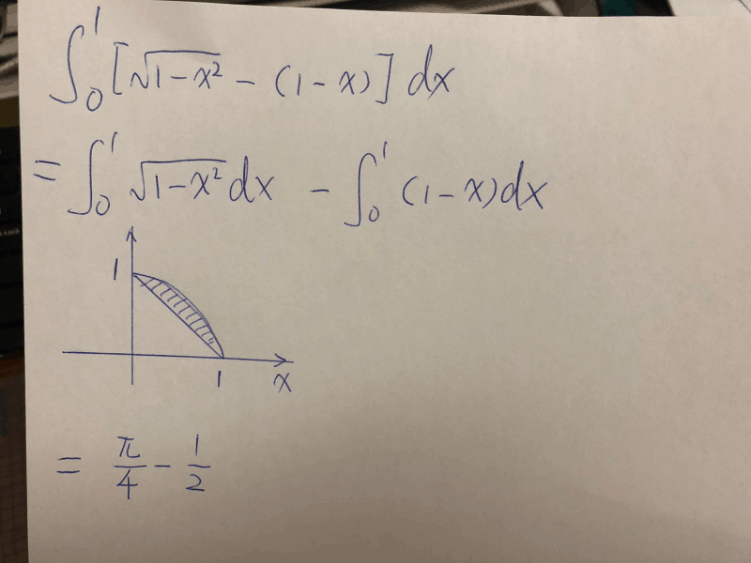 ∫₀¹ [√(1-x²) - (1-x)] dx
= ∫₀¹ √(1-x²) dx - ∫₀¹ (1-x)dx
1
1 x
= π/4 - 1/2